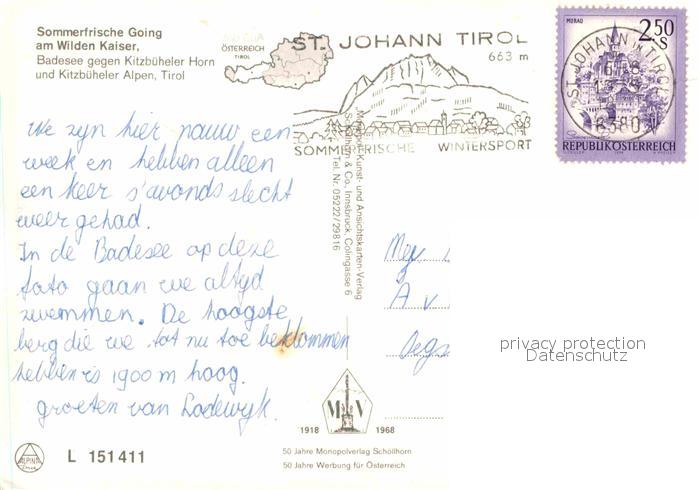 Sommerfrische Going
am Wilden Kaiser,
Badesee gegen Kitzbüheler Horn
und Kitzbüheler Alpen, Tirol
ÖSTERREICH
TIROL
ST. JOHANN TIROL
663 m
SOMMERFRISCHE WINTERSPORT
MURAU
2.50
S
ST. JOHANN IN TIROL
6380
REPUBLIK ÖSTERREICH
We zyn hier nauw een
week en hebben alleen
een keer s'avonds slecht
weer gehad.
In de Badesee op deze
foto gaan we altyd
zwemmen. De hoogste
berg die we tot nu toe beklommen
hebben is 1900 m hoog.
groeten van Lodewyk.
Monopol-Kunst- und Ansichtskarten-Verlag
Schöllhorn & Co., Innsbruck, Colingasse 6
Tel. Nr. 05222/29816
Mej
A v
privacy protection
Datenschutz
M V
1918 1968
50 Jahre Monopolverlag Schöllhorn
50 Jahre Werbung für Österreich
ALPINA
L 151411